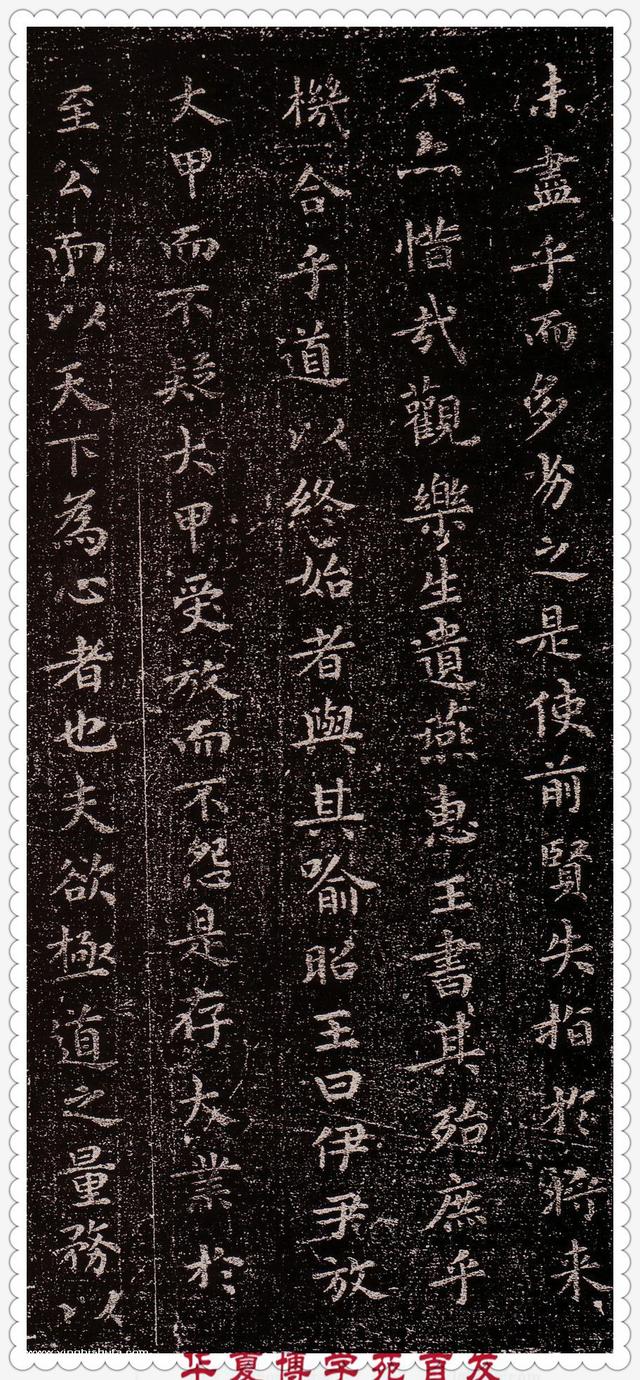 未盡乎而多劣之是使前賢失指於將来
不亦惜哉觀樂生遺燕惠王書其殆庶乎
機合乎道以終始者與其喻昭王曰伊尹放
大甲而不疑大甲受放而不怨是存大業於
至公而以天下為心者也夫欲極道之量務以
www.yingbishufa.com
华夏博学苑首发